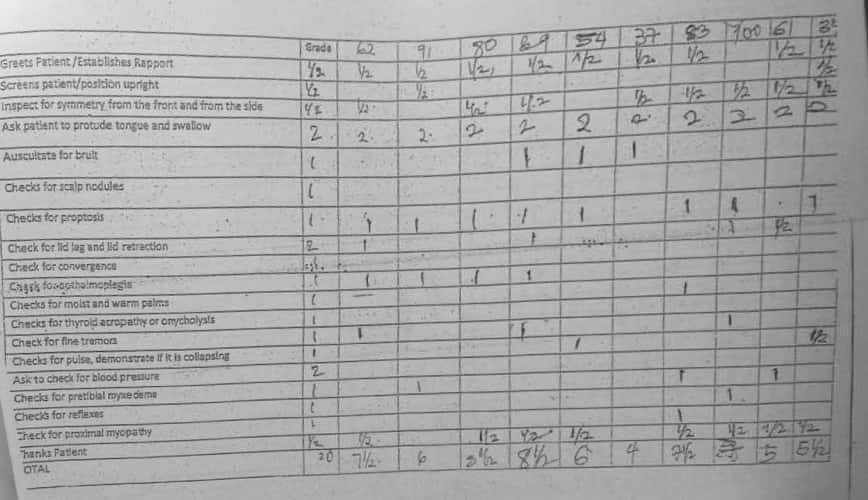 Grade 62 91 80 89 54 37 83 700 61
Greets Patient/Establishes Rapport 1/2 1/2 1/2 1/2 1/2 1/2 1/2 1/2 1/2 1/2
Screens patient/position upright 1/2 1/2 1/2
Inspect for symmetry from the front and from the side 1/2 1/2 1/2 1/2 1/2 1/2 1/2 1/2 1/2
Ask patient to protude tongue and swallow 2 2 2 2 2 2 2 2 2 2 2
Auscultate for bruit 1 1 1 1
Checks for scalp nodules 1
Checks for proptosis 1 1 1 1 1 1 1 1 1
Check for lid lag and lid retraction 2 1 1 1 1/2
Check for convergence
1 1 1 1 1
Checks for moist and warm palms 1 1
Checks for thyroid acropathy or onycholysis 1 1
Check for fine tremors 1 1 1
Checks for pulse, demonstrate if it is collapsing 1 1 1/2
Ask to check for blood pressure 2 1 1
Checks for pretibial myxedema 1 1 1
Checks for reflexes 1 1
Check for proximal myopathy 1
Thanks Patient 1/2 1/2 1/2 1/2 1/2 1/2 1/2 1/2 1/2
OTAL 20 7 1/2 6 8 1/2 6 4 7 1/2 5 5 1/2